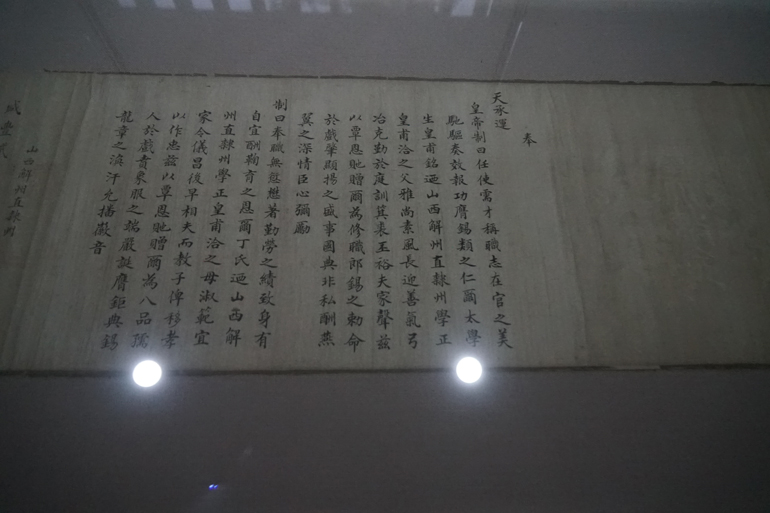 奉
天承運
皇帝制曰任使需才稱職志在官之美
馳驅奏效報功膺錫類之仁爾太學
生皇甫銘迺山西解州直隸州學正
皇甫洽之父雅尚素風長迎善氣弓
冶克勤於庭訓箕裘丕裕夫家聲茲
以覃恩貤贈爾為修職郎錫之勅命
於戲肇顯揚之盛事國典非私酬燕
翼之深情臣心彌勵
制曰奉職無愆懋著勤勞之績致身有
自宜酬鞠育之恩爾丁氏迺山西解
州直隸州學正皇甫洽之母淑範宜
家令儀昌後早相夫而教子俾移孝
以作忠茲以覃恩貤贈爾為八品孺
人於戲賁象服之端嚴誕膺鉅典錫
龍章之渙汗允播徽音
山西解州直隸州
咸豐貳